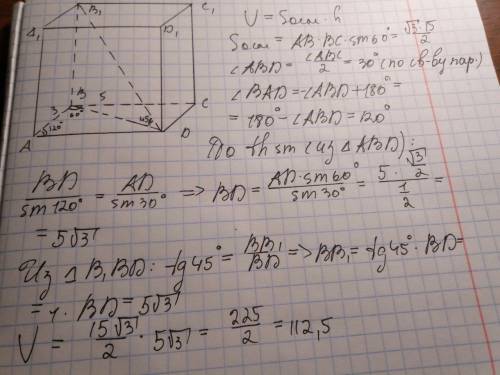 B₁ C₁
A₁ D₁
B 5 C
3 60° 45°
120°
A D
V = Sосн · h
Sосн = AB · BC · sin60° = √3·15/2
∠ABD = ∠ABC/2 = 30° (по св-ву пар.)
∠BAD = -∠ABD + 180° =
= 180° - ∠ABD = 120°
По th sin (из △ABD):
BD/sin120° = AD/sin30° => BD = AD·sin60°/sin30° = 5 · √3/2 / 1/2 =
= 5√3
Из △B₁BD: tg45° = BB₁/BD => BB₁ = tg45° · BD =
= 1 · BD = 5√3
V = 15√3/2 · 5√3 = 225/2 = 112,5